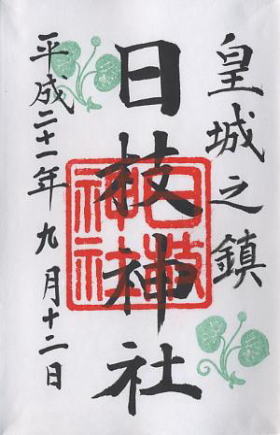 皇城之鎮
日枝神社
平成二十一年九月十二日
日枝神社